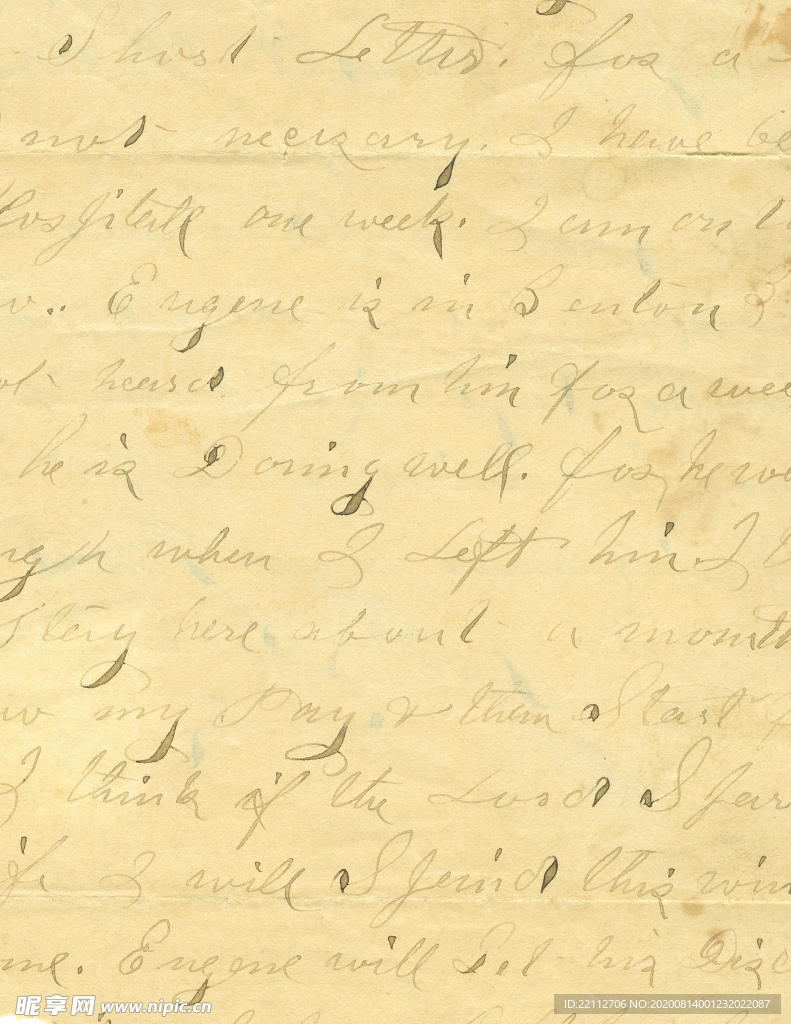 Short Letter. for a
not necissary. I have be
Hospitale one week. I am on t
w.. Eugene is in Benton B
ot heard from him for a wee
he is Doring well. for he we
ng h when I Left him. I
Stay here about a month
w my Pay & then Start f
I think if the Lord Spar
ife I will Speind this win
me. Eugene will Get his Disc
昵享网 www.nipic.cn
ID:22112706 NO:20200814001232022087